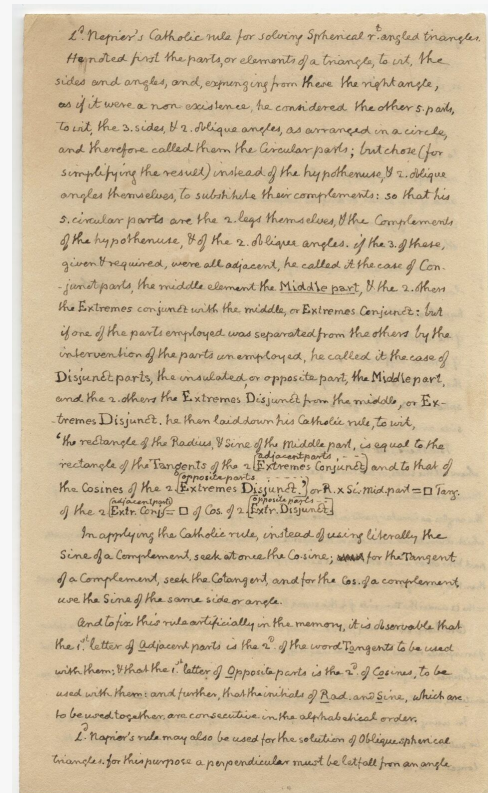 Ld. Nepier's Catholic rule for solving Spherical rt. angled triangles.
He noted first the parts, or elements of a triangle, to wit, the
sides and angles, and, expunging from these the right angle,
as if it were a non existence, he considered the other 5. parts,
to wit, the 3. sides, & 2. oblique angles, as arranged in a circle,
and therefore called them the Circular parts; but chose (for
simplifying the result) instead of the hypothenuse, & 2. oblique
angles themselves, to substitute their complements: so that his
5. circular parts are the 2. legs themselves, & the Complements
of the hypothenuse, & of the 2. oblique angles. if the 3. of these,
given & required, were all adjacent, he called it the case of Con-
-junct parts, the middle element the Middle part, & the 2. others
the Extremes conjunct with the middle, or Extremes Conjunct: but
if one of the parts employed was separated from the others by the
intervention of the parts unemployed, he called it the case of
Disjunct parts, the insulated, or opposite part, the Middle part,
and the 2. others the Extremes Disjunct from the middle, or Ex-
-tremes Disjunct. he then laid down his Catholic rule, to wit,
'the rectangle of the Radius, & Sine of the Middle part, is equal to the
adjacent parts
rectangle of the Tangents of the 2. [Extremes Conjunct] and to that of
opposite parts
the Cosines of the 2. [Extremes Disjunct.'] or R. x Si. Mid. part = □ Tang.
(adjacent part) opposite parts
of the 2 [Extr. Conj.] = □ of Cos. of 2. [Extr. Disjunct.]
In applying the Catholic rule, instead of using literally the
Sine of a Complement, seek at once the Cosine; for the Tangent
of a Complement, seek the Cotangent, and for the Cos. of a complement,
use the Sine of the same side or angle.
And to fix this rule artificially in the memory, it is observable that
the 1st. letter of Adjacent parts is the 2d. of the word Tangents to be used
with them; & that the 1st. letter of Opposite parts is the 2d. of Cosines, to be
used with them: and further, that the initials of Rad. and Sine, which are
to be used together, are consecutive in the alphabetical order.
Ld. Napier's rule may also be used for the solution of Oblique spherical
triangles. for this purpose a perpendicular must be let fall from an angle